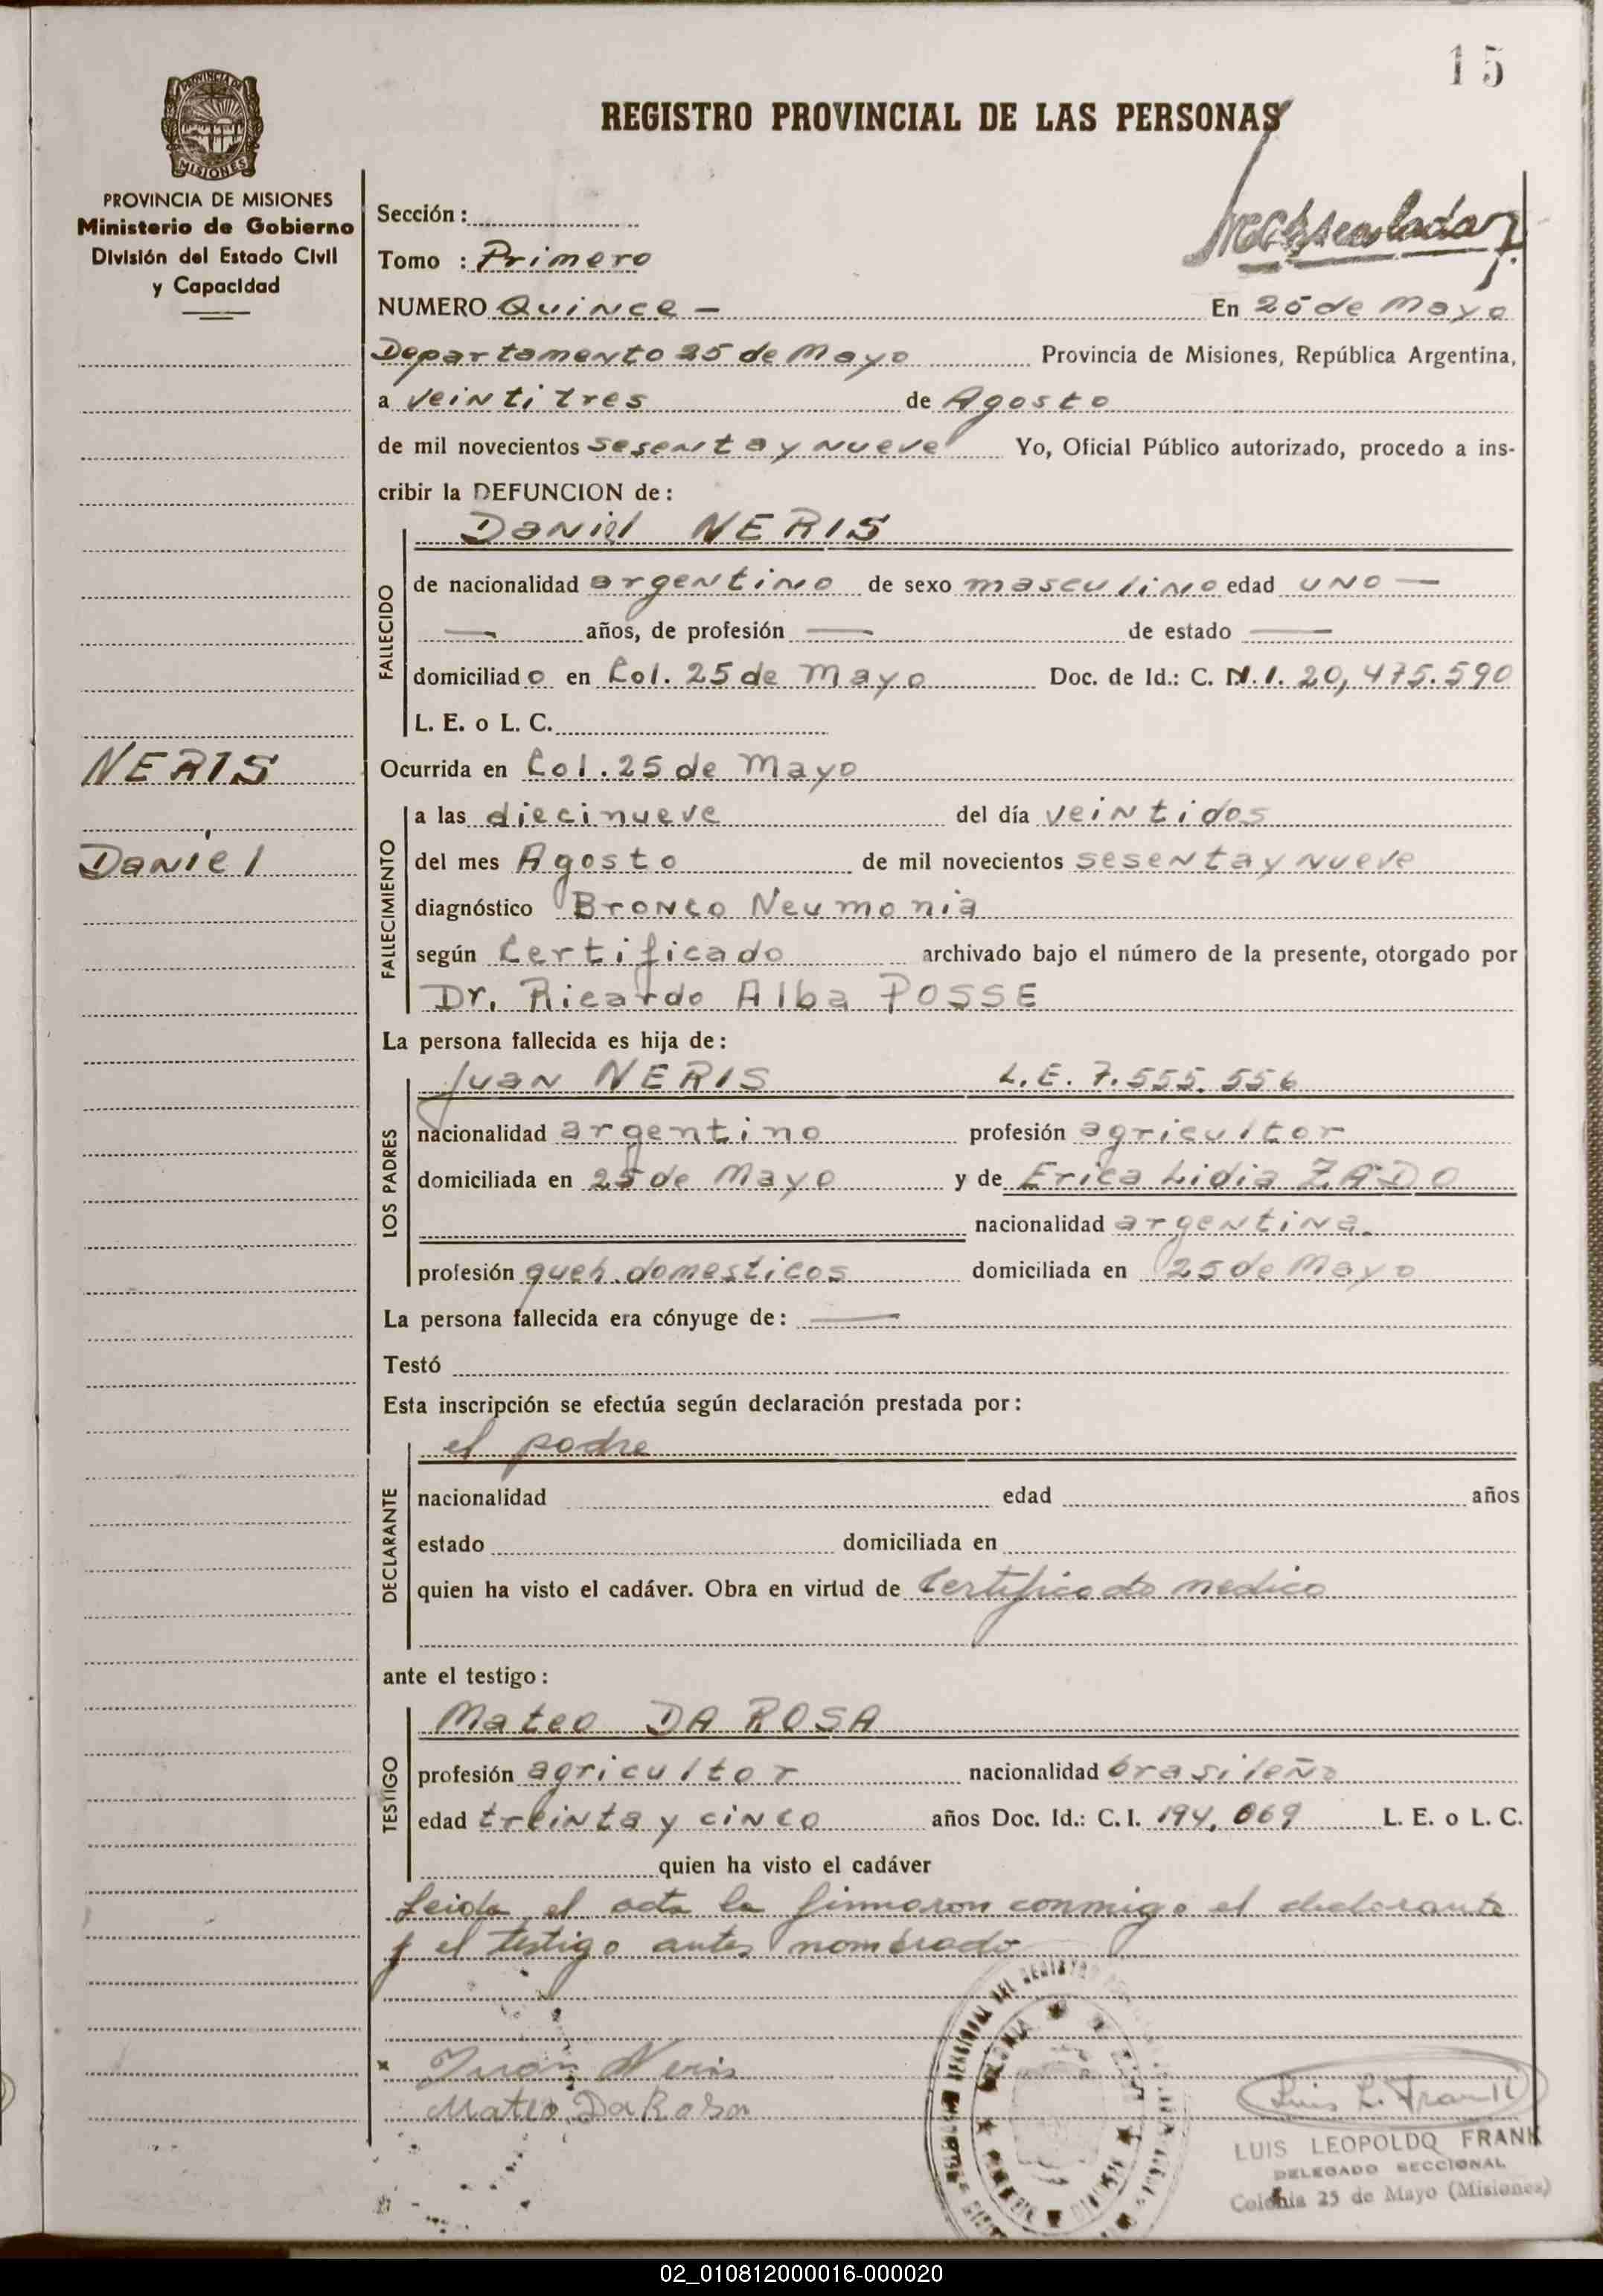 15
REGISTRO PROVINCIAL DE LAS PERSONAS
PROVINCIA DE MISIONES
Ministerio de Gobierno
División del Estado Civil
y Capacidad
Sección :
Tomo : Primero
NUMERO Quince - En 25 de Mayo
Departamento 25 de Mayo Provincia de Misiones, República Argentina,
a veintitres de Agosto
de mil novecientos sesenta y nueve Yo, Oficial Público autorizado, procedo a ins-
cribir la DEFUNCION de :
FALLECIDO
Daniel NERIS
de nacionalidad argentino de sexo masculino edad uno —
— años, de profesión — de estado —
domiciliado en Col. 25 de Mayo Doc. de Id.: C. N.I. 20,475.590
L. E. o L. C.
NERIS
Daniel
Ocurrida en Col. 25 de Mayo
FALLECIMIENTO
a las diecinueve del día veintidos
del mes Agosto de mil novecientos sesenta y nueve
diagnóstico Bronco Neumonia
según Certificado archivado bajo el número de la presente, otorgado por
Dr. Ricardo Alba POSSE
La persona fallecida es hija de :
LOS PADRES
Juan NERIS L.E. 7.555.556
nacionalidad argentino profesión agricultor
domiciliada en 25 de Mayo y de Erica Lidia ZADO
nacionalidad argentina.
profesión queh. domesticos domiciliada en 25 de Mayo
La persona fallecida era cónyuge de : —
Testó
Esta inscripción se efectúa según declaración prestada por :
DECLARANTE
el padre
nacionalidad edad años
estado domiciliada en
quien ha visto el cadáver. Obra en virtud de Certificado medico
ante el testigo :
TESTIGO
Mateo DA ROSA
profesión agricultor nacionalidad brasileño
edad treinta y cinco años Doc. Id.: C. I. 194.069 L. E. o L. C.
quien ha visto el cadáver
Leida el acta la firmaron conmigo el declarante
y el testigo antes nombrado
x Juan Neris
Mateo Da Rosa
Luis L. Frank
LUIS LEOPOLDO FRANK
DELEGADO SECCIONAL
Colonia 25 de Mayo (Misiones)
02_010812000016-000020